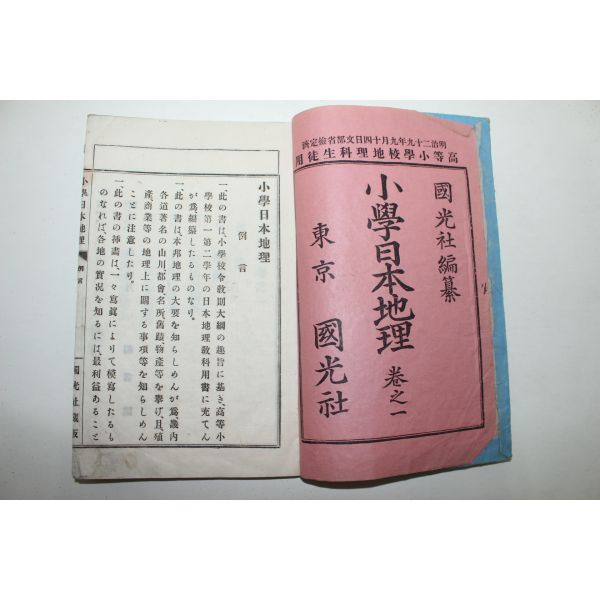 明治二十九年九月十四日文部省檢定濟
高等小學校地理科生徒用
國光社編纂
小學日本地理 卷之一
東京 國光社
小學日本地理
例言
一、此の書は、小學校令敎則大綱の趣旨に基き、高等小
學校第一第二學年の日本地理敎科用書に充てん
が爲、編纂したるものなり。
一、此の書は、本邦地理の大要を知らしめんが爲、畿內
各道著名の山川都會名所、舊蹟物產等を擧げ、且、殖
產、商業等の地理上に關する事項等を知らしめん
ことに注意したり。
一、此の書の挿畫は、一々寫眞によりて模寫したるも
のなれば、各地の實況を知るには、最利益あること
小學日本地理 例言 國光社藏版